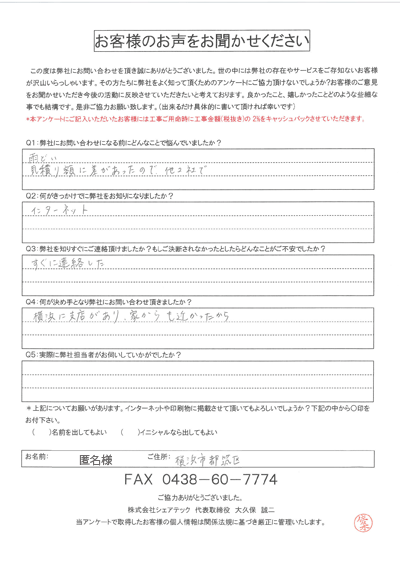 お客様のお声をお聞かせください
この度は弊社にお問い合わせを頂き誠にありがとうございました。世の中には弊社の存在やサービスをご存知ないお客様
が沢山いらっしゃいます。その方たちに弊社をよく知って頂くためのアンケートにご協力頂けないでしょうか?お客様のご意見
をお聞かせいただき今後の活動に反映させていただきたいと考えております。良かったこと、嬉しかったことどのような些細な
事でも結構です。是非ご協力お願い致します。（出来るだけ具体的に書いて頂ければ幸いです）
*本アンケートにご記入いただいたお客様には工事ご用命時に工事金額(税抜き)の 2%をキャッシュバックさせていただきます。
Q1:弊社にお問い合わせになる前にどんなことで悩んでいましたか?
雨どい
見積り額に差があったので 他2社で
Q2:何がきっかけでに弊社をお知りになりましたか?
インターネット
Q3:弊社を知りすぐにご連絡頂けましたか?もしご決断されなかったとしたらどんなことがご不安でしたか?
すぐに連絡した
Q4:何が決め手となり弊社にお問い合わせ頂きましたか?
横浜に支店があり、家からも近かったから
Q5:実際に弊社担当者がお伺いしていかがでしたか?
＊上記についてお願いがあります。インターネットや印刷物に掲載させて頂いてもよろしいでしょうか?下記の中から〇印を
お付下さい。
(　)名前を出してもよい　(　)イニシャルなら出してもよい
お名前: 匿名様 ご住所: 横浜市都筑区
FAX 0438－60－7774
ご協力ありがとうございました。
株式会社シェアテック 代表取締役 大久保 誠二
当アンケートで取得したお客様の個人情報は関係法規に基づき厳正に管理いたします。